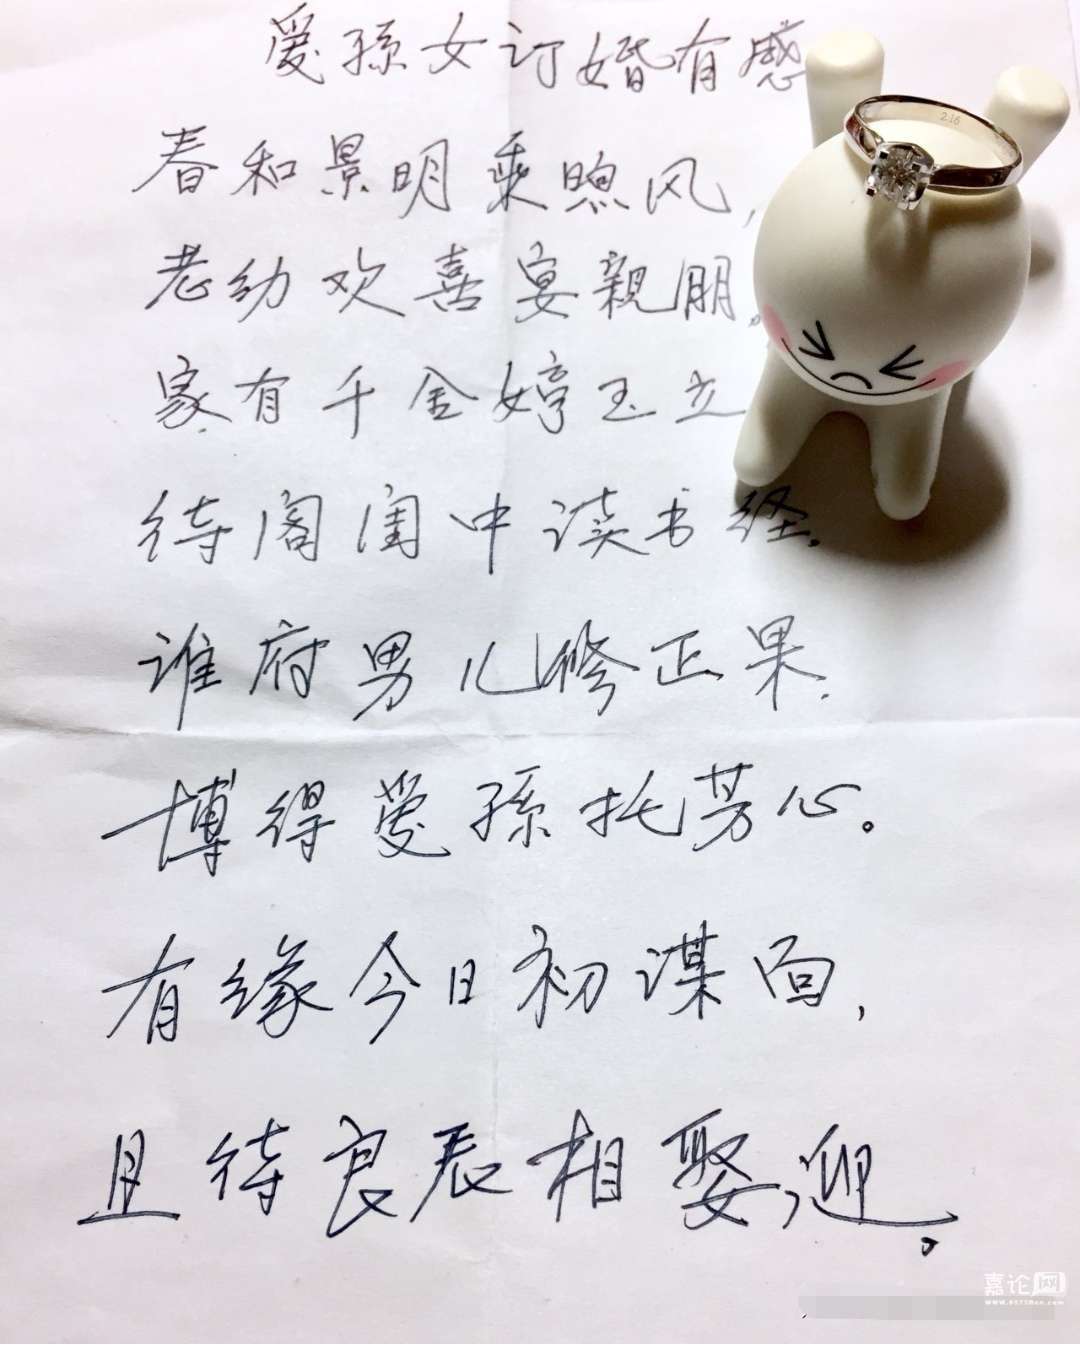 爱孫女订婚有感
春和景明乘煦风,
老幼欢喜宴親朋。
家有千金婷玉立
待阁闺中读书经.
谁府男儿修正果.
博得爱孫托芳心。
有缘今日初谋面,
且待良辰相娶迎。
216
嘉论网